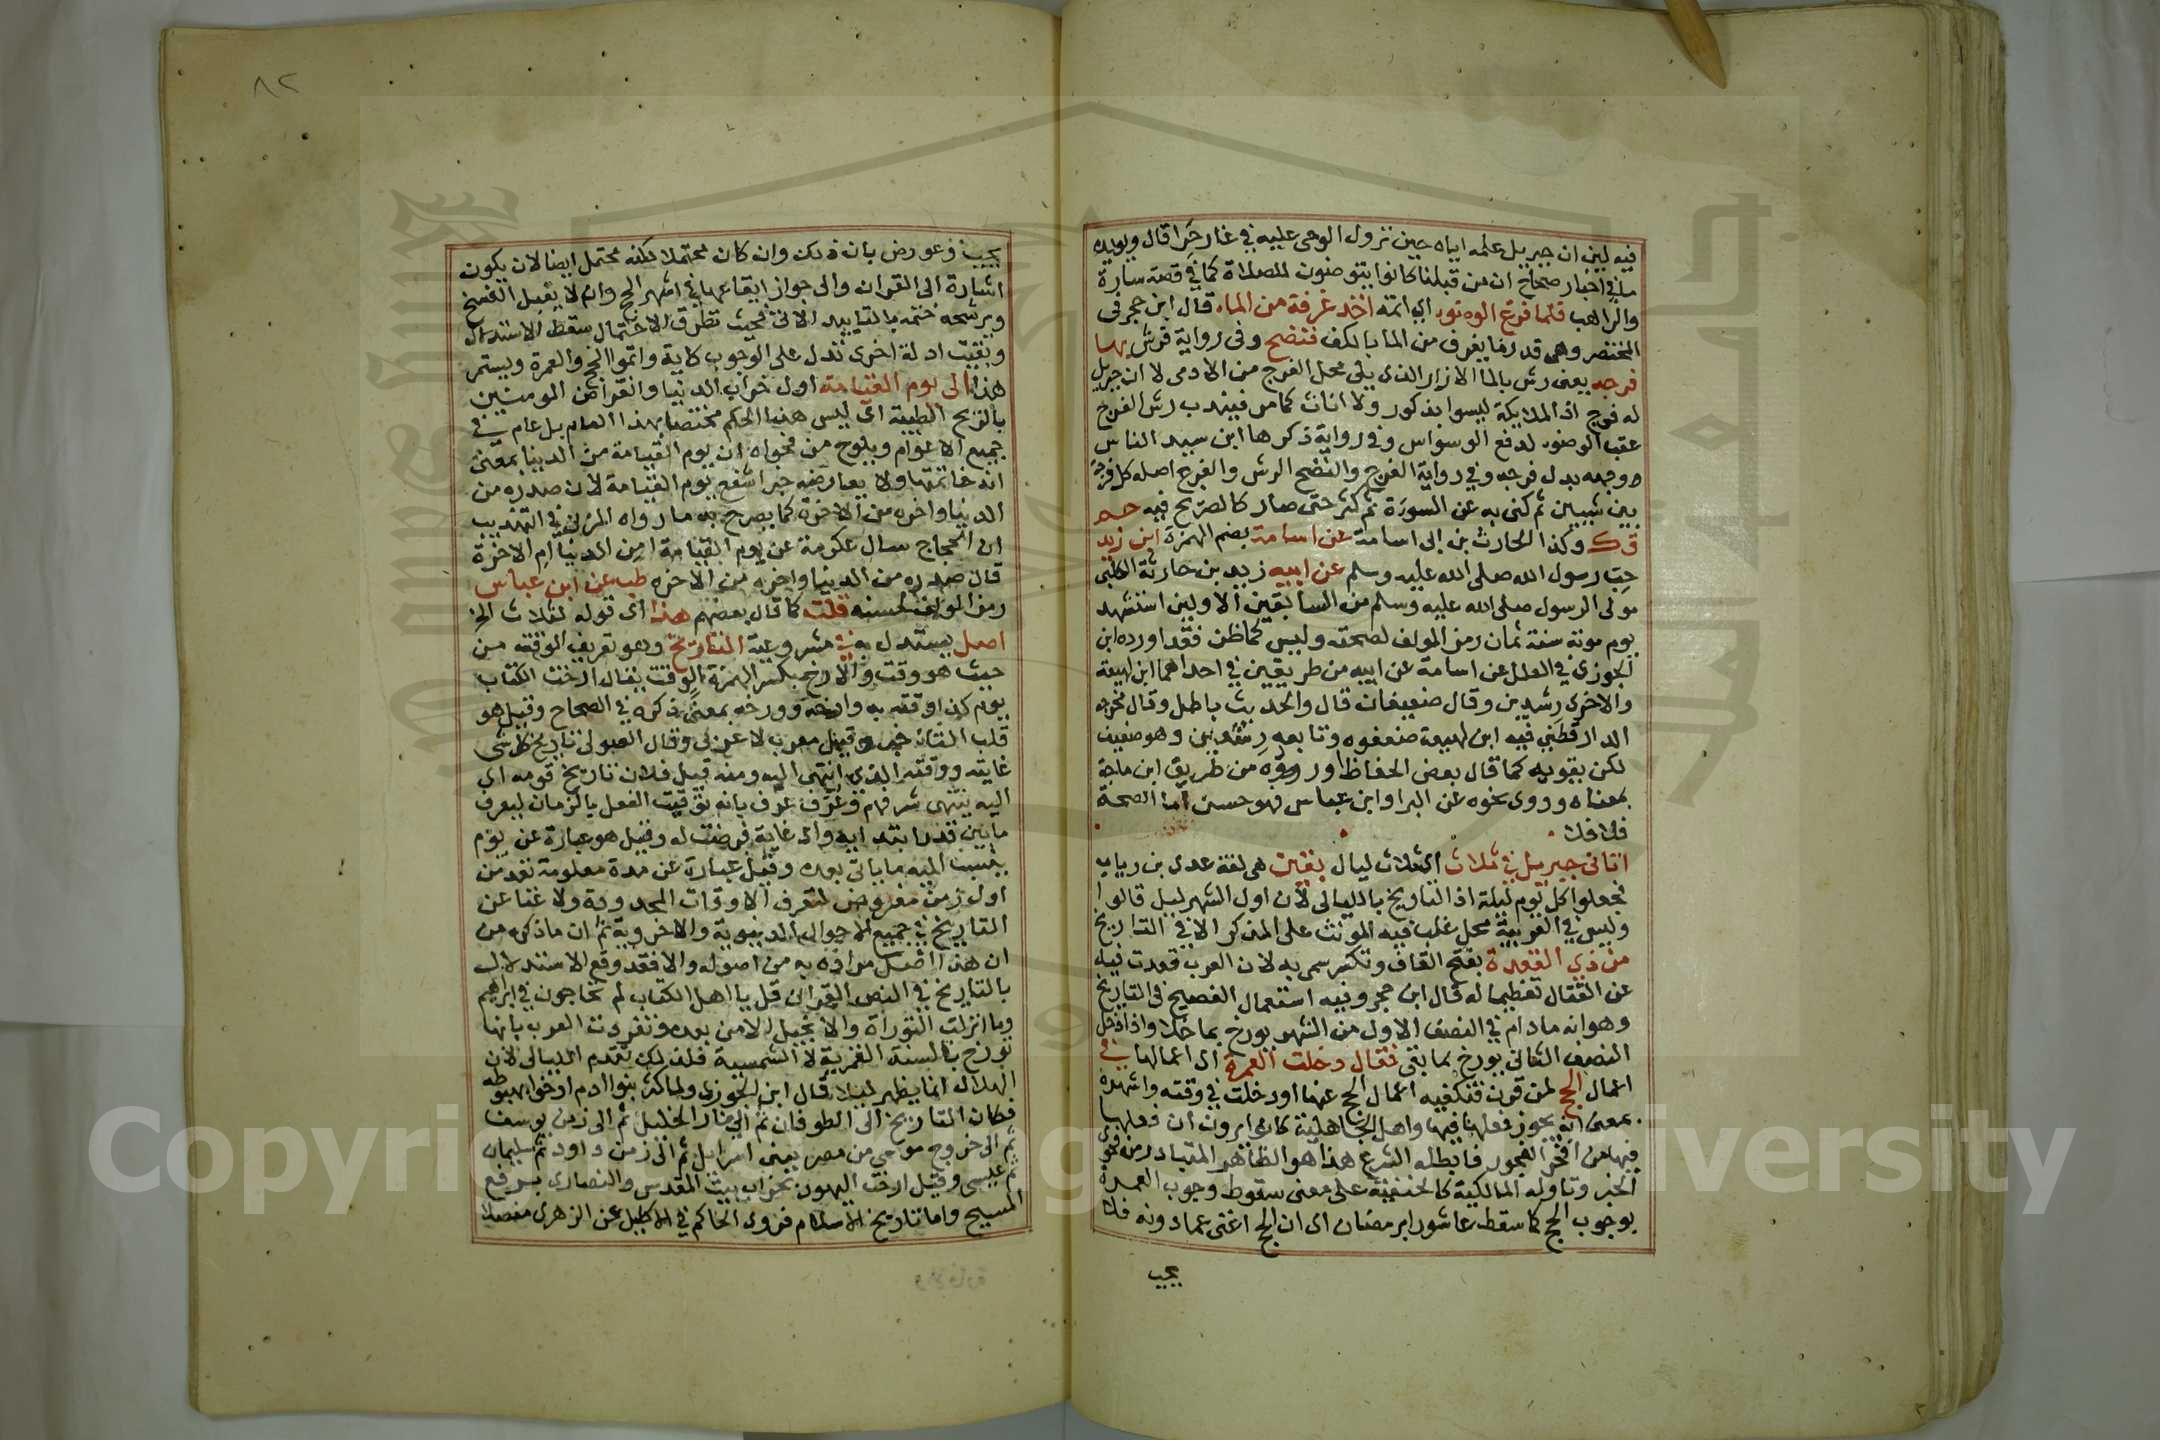 فيه لين ان جبريل علمه اياه حين نزول الوحى عليه في غار حرا قال ويويده
ما في اخبار صحاح ان من قبلنا كانوا يتوضئون للصلاة كما في قصة سارة
والراهب فلما فرغ الوضوء اي اتمه اخذ غرفة من الماء قال ابن حجر في
المختصر وهى قدر ما يغرف من الما بالكف فنضح وفى رواية فرش بها
فرجه يعنى رش بالما الازار الذى يلى محل الفرج من الادمى لا ان جبريل
له فرج اذ الملايكة ليسوا بذكور ولا اناث كما مر فيندب رش الفرج
عقب الوضوء لدفع الوسواس وفي رواية ذكرها ابن سيد الناس
ووجهه بدل فرجه وفي رواية الفرج والنضح الرش والفرج اصله كل فرجة
بين شيين ثم كنى به عن السورة ثم كثر حتى صار كالصريح فيه حم
ق ك وكذا الحارث بن ابى اسامة عن اسامة بضم الهمزة ابن زيد
حب رسول الله صلى الله عليه وسلم عن ابيه زيد بن حارثة الكلبى
مولى الرسول صلى الله عليه وسلم من السابقين الاولين استشهد
يوم موتة سنة ثمان رمز المولف لصحته وليس كما ظن فقد اورده ابن
الجوزى في العلل عن اسامة عن ابيه من طريقين في احداهما ابن لهيعة
والاخرى رشدين وقال ضعيفان قال والحديث باطل وقال مخرجه
الدارقطني فيه ابن لهيعة ضعفوه وتابعه رشدين وهو ضعيف
لكن يقويه كما قال بعض الحفاظ وروده من طريق ابن ماجة
بمعناه وروى نحوه عن البرا وابن عباس فهو حسن اما الصحة
فلا فلا
اتانى جبريل في ثلاث اى ثلاث ليال بقين هى لغة عدى بن رباب
فجعلوا كل يوم ليلة اذ التاريخ بالليالى لان اول الشهر ليل قالوا
وليس في العربية محل غلب فيه المونث على المذكر الا في التاريخ
من ذي القعدة بفتح القاف وتكسر سمى به لان العرب قعدت فيه
عن القتال تعظيما له قال ابن حجر وفيه استعمال الفصيح فى التاريخ
وهو انه مادام في النصف الاول من الشهر يورخ بما خلا واذا دخل
النصف الثانى يورخ بما بقى فقال دخلت العمرة اى اعمالها في
اعمال الحج لمن قرن فتكفيه اعمال الحج عنها او دخلت في وقته واشهره
بمعنى انه يجوز فعلها فيها واهل الجاهلية كانوا يرون ان فعلها
فيها من افجر الفجور فابطله الشرع هذا هو الظاهر المتبادر من فحوى
الخبر وتاوله المالكية كالحنفية على معنى سقوط وجوب العمرة
بوجوب الحج كما سقط عاشورا برمضان اى ان الحج اغنى عما دونه فلا
يجب
٨٢
يجب وعورض بان ذلك وان كان محتملا لكنه محتمل ايضا لان يكون
اشارة الى القران والى جواز ايقاعها في اشهر الحج وانه لا يقبل الفسخ
ويرشحه ختمه بالتابيد الاتى فحيث تطرق الاحتمال سقط الاستدلال
وبقيت ادلة اخرى تدل على الوجوب كاية واتموا الحج والعمرة ويستمر
هذا الى يوم القيامة اول خراب الدنيا وانقراض المومنين
بالريح الطيبة اى ليس هذا الحكم مختصا بهذا العام بل عام في
جميع الاعوام ويلوح من فحواه ان يوم القيامة من الدنيا بمعنى
انه خاتمتها ولا يعارضه خبر اشفع يوم القيامة لان صدره من
الدنيا واخره من الاخرة كما يصرح به ما رواه المزى في التهذيب
ان الحجاج سال عكرمة عن يوم القيامة امن الدنيا ام الاخرة
قال صدره من الدنيا واخره من الاخره طب عن ابن عباس
رمز المولف لحسنه قلت كما قال بعضهم هذا اى قوله لثلاث الخ
اصل يستدل به في مشروعية التاريخ وهو تعريف الوقت من
حيث هو وقت والارخ بكسر الهمزة الوقت يقال ارخت الكتاب
يوم كذا وقته به وارخه وورخه بمعنى ذكره في الصحاح وقيل هو
قلب التاخير وقيل معرب لا عربى وقال الصولى تاريخ كل شى
غايته ووقته الذى انتهى اليه ومنه قيل فلان تاريخ قومه اى
اليه ينتهى شرفهم وعُرّف عرف بانه توقيت الفعل بالزمان ليعرف
ما بين قدر ابتدايه واى غاية فرضت له وقيل هو عبارة عن يوم
ينسب اليه ما ياتى بعده وقيل عبارة عن مدة معلومة تعد من
اول زمن مفروض لتعرف الاوقات المحدودة ولا غنا عن
التاريخ في جميع الاحوال الدنيوية والاخروية ثم ان ما ذكره من
ان هذا اصل مراده به من اصوله والا فقد وقع الاستدلال
بالتاريخ في النص القرانى قل يا اهل الكتاب لم تحاجون في ابراهيم
وما انزلت التوراة والانجيل الا من بعده وتفردت العرب بانها
تورخ بالسنة القمرية لا الشمسية فلذلك تقدم الليالى لان
الهلال انما يظهر ليلا قال ابن الجوزى ولما كثر بنوا ادم ارخوا بهبوطه
فكان التاريخ الى الطوفان ثم الى نار الخليل ثم الى زمن يوسف
ثم الى خروج موسى من مصر ببنى اسرايل ثم الى زمن داود ثم سليمان
ثم عيسى وقيل ارخت اليهود بخراب بيت المقدس والنصارى برفع
المسيح واما تاريخ الاسلام فروى الحاكم في الاكليل عن الزهرى معضلا
Copyri g versity